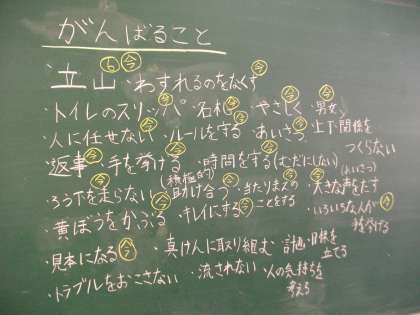 がんばること
・立山 ・わすれるのをなくす
・トイレのスリッパ ・名札 ・やさしく ・男女
・人に任せない ・ルールをする ・あいさつ ・上下関係をつくらない
・返事 ・手を挙げる ・時間をする(むだにしない)
・ろう下を走らない (積極的)助け合う ・当たりまえのことをする ・大きな声をだす(あいさつ)
・黄ぼうをかぶる ・キレイにする ・いろいろな人が
・見本になる ・真けんに取り組む ・計画・目標を立てる
・トラブルをおこさない ・流されない ・人の気持ちを考える
今 今 今 今 今 今 今 今 今 今 今 今 今